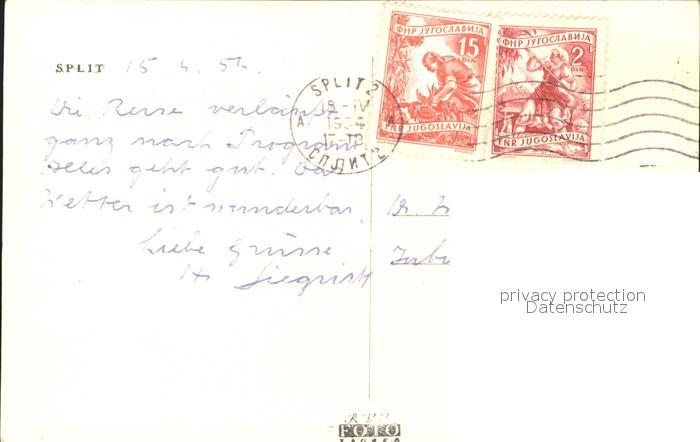 SPLIT 15. 4. 54.
Die Reise verläuft
ganz nach Programm
Alles geht gut. Das
Wetter ist wunderbar.
Liebe Grüsse
H. Siegrist
ФНР ЈУГОСЛАВИЈА
15 DIN
FNR JUGOSLAVIJA
ФНР ЈУГОСЛАВИЈА
2 DIN
FNR JUGOSLAVIJA
SPLIT 2
18-IV
1954
СПЛИТ 2
privacy protection
Datenschutz
FOTO
ZAGREB